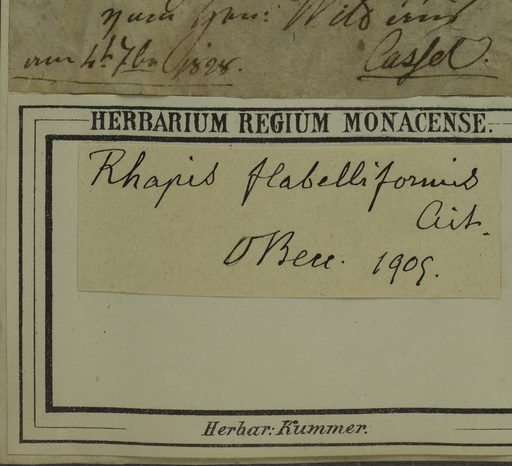 Wild
am 4t. 7br 1828.
Cassel.
HERBARIUM REGIUM MONACENSE.
Rhapis flabelliformis
Ait.
OBecc. 1905.
Herbar: Kummer.